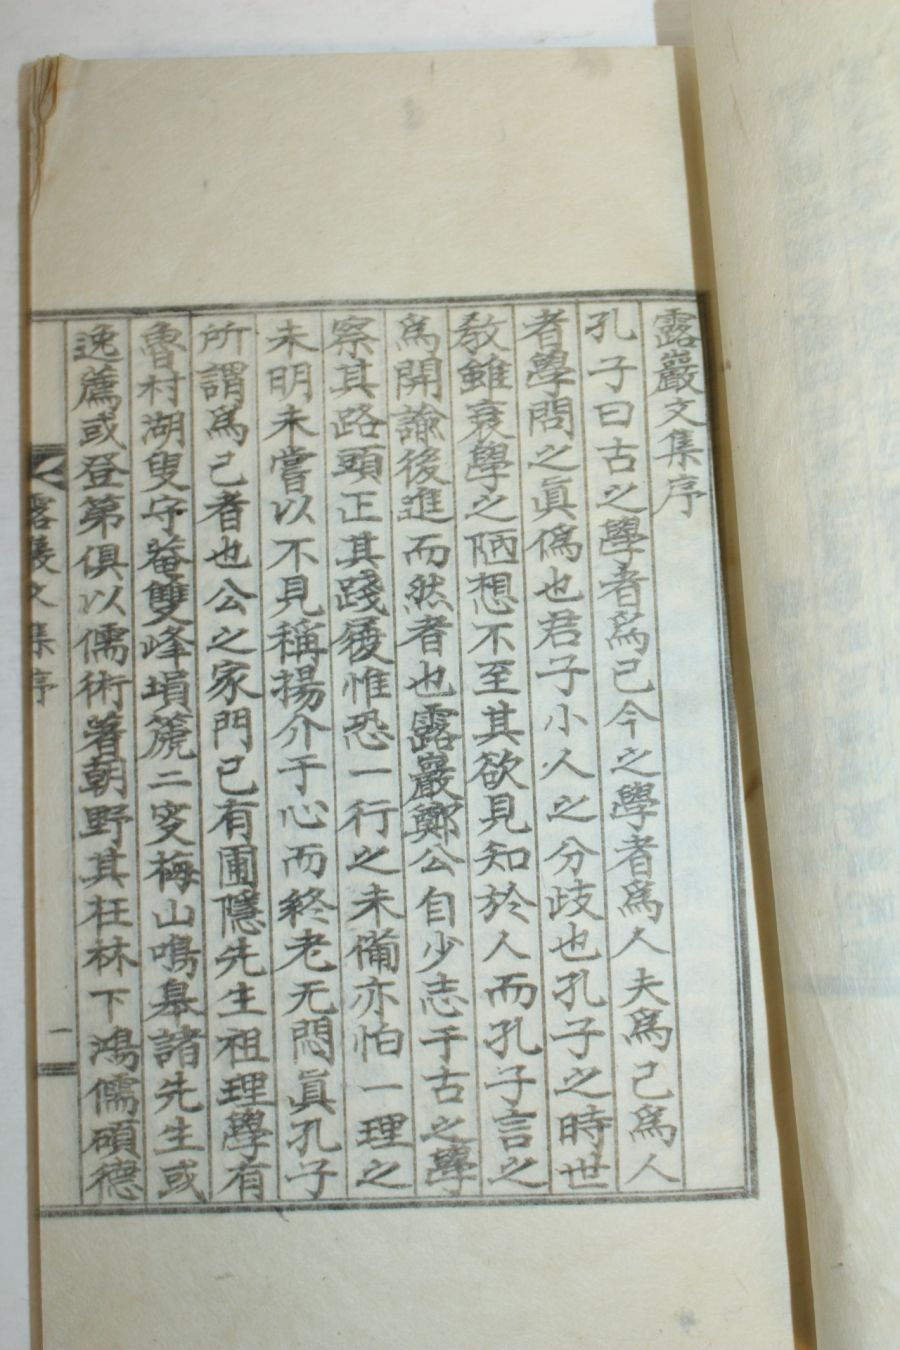 露巖文集序
孔子曰古之學者爲己今之學者爲人夫爲己爲人
者學問之眞僞也君子小人之分歧也孔子之時世
敎雖衰學之陋想不至其欲見知於人而孔子言之
爲開諭後進而然者也露巖鄭公自少志于古之學
察其路頭正其踐履惟恐一行之未備亦怕一理之
未明未嘗以不見稱揚介于心而終老无悶眞孔子
所謂爲己者也公之家門已有圃隱先生祖理學有
魯村湖叟守菴雙峰塤篪二叟梅山鳴皋諸先生或
逸薦或登第俱以儒術著朝野其在林下鴻儒碩德
露巖文集序
一